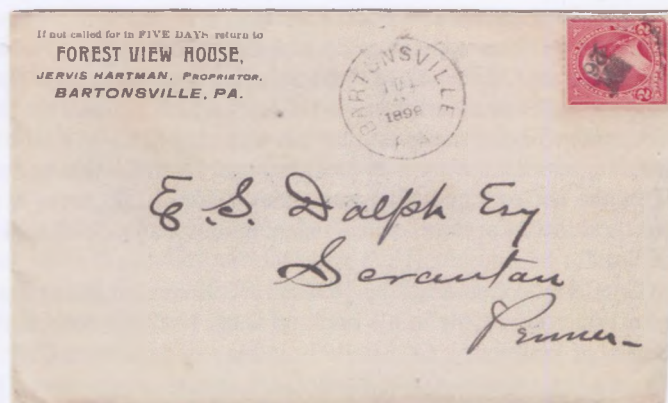 If not called for in FIVE DAYS return to
FOREST VIEW HOUSE,
JERVIS HARTMAN, PROPRIETOR,
BARTONSVILLE, PA.
BARTONSVILLE
1899
PA
E. S. Dolph Esq
Scranton
Penna